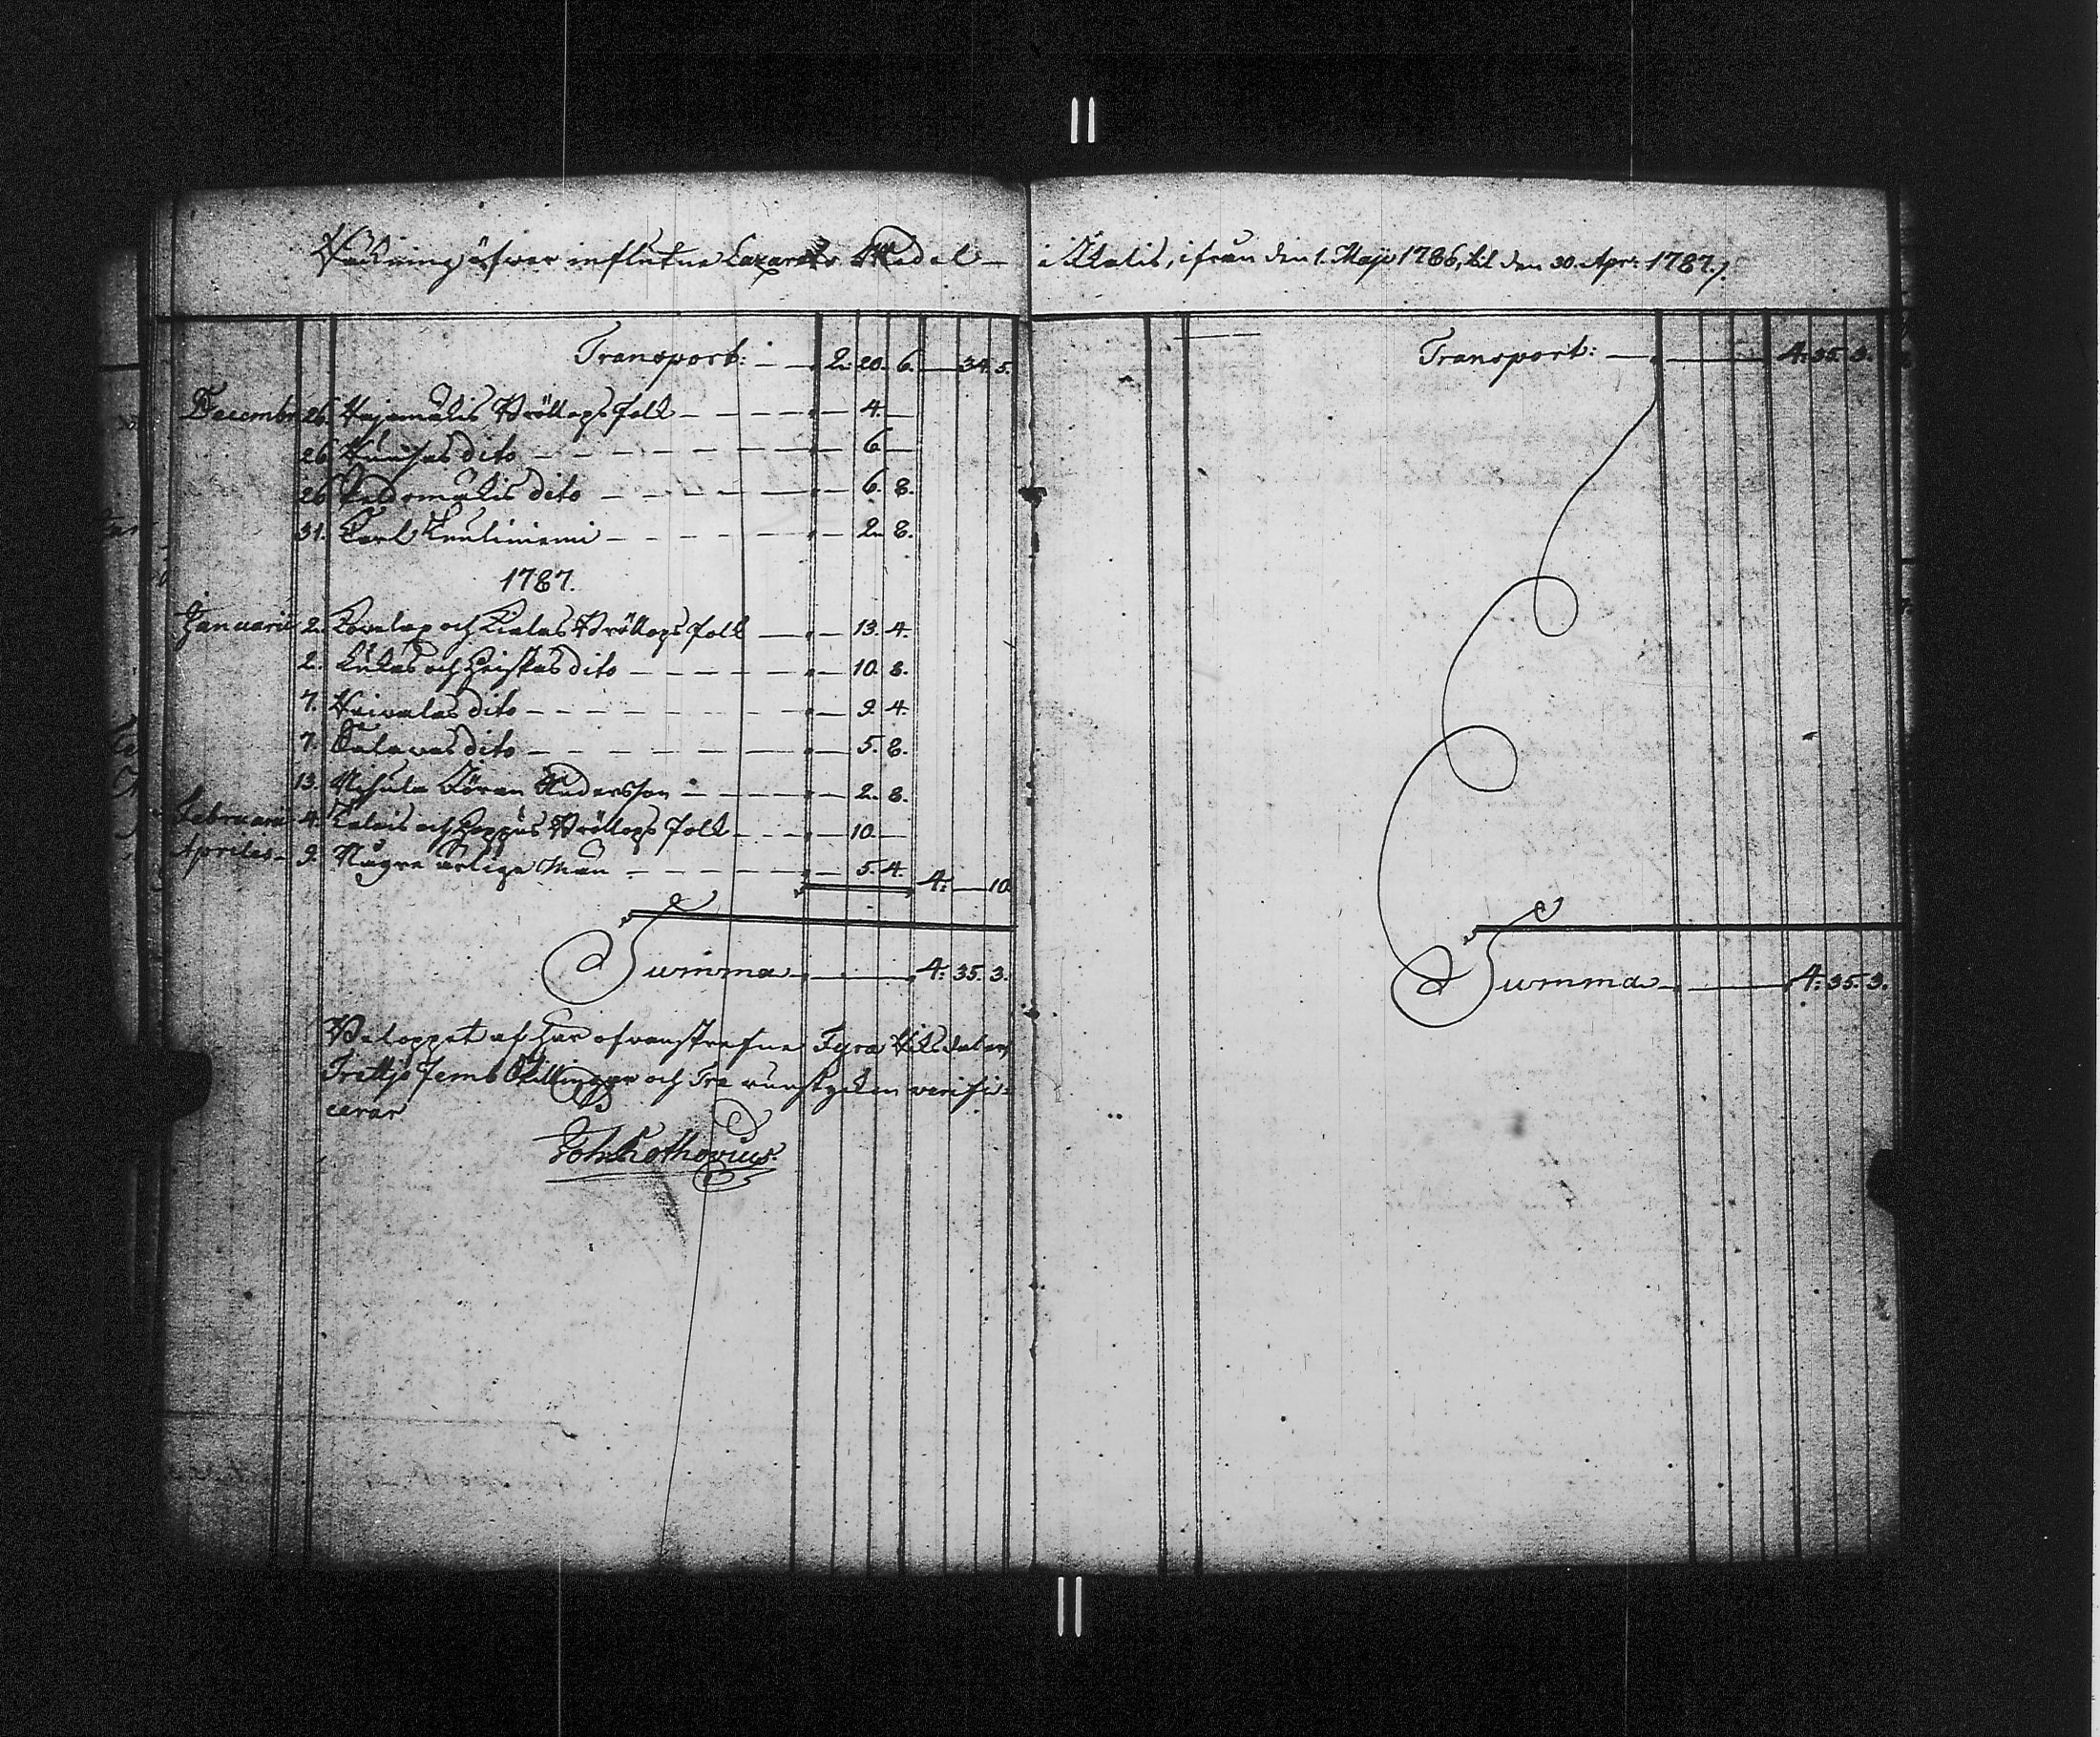 Räkning öfwer influtne Lazaretts Medel — i Utalis, ifrån den 1. Maji 1786, til den 30. Apr: 1787.
Transport: — 2. 20. 6. — 34. 5.
Decembr 26. Bröllops folk — 4. —
26 dito — 6 —
26 dito — 6. 8.
31. Carl — 2. 8.
1787.
Januarii 2. och Bröllops folk — 13. 4.
2. Lukas och dito — 10. 8.
7. dito — 9. 4.
7. dito — 5. 8.
13. Göran Andersson — 2. 8.
Februarii 4. och Bröllops folk — 10. —
Aprilis 9. Några ärliga Män — 5. 4. 4. — 10.
Summa — 4. 35. 3.
Beloppet af här ofvanskrefne Fyra Riksdaler,
Trettjo femb Skillingar och Tre runstycken verifi=
cerar
Joh Rothovius.
Transport: — 4. 35. 3.
Summa — 4. 35. 3.